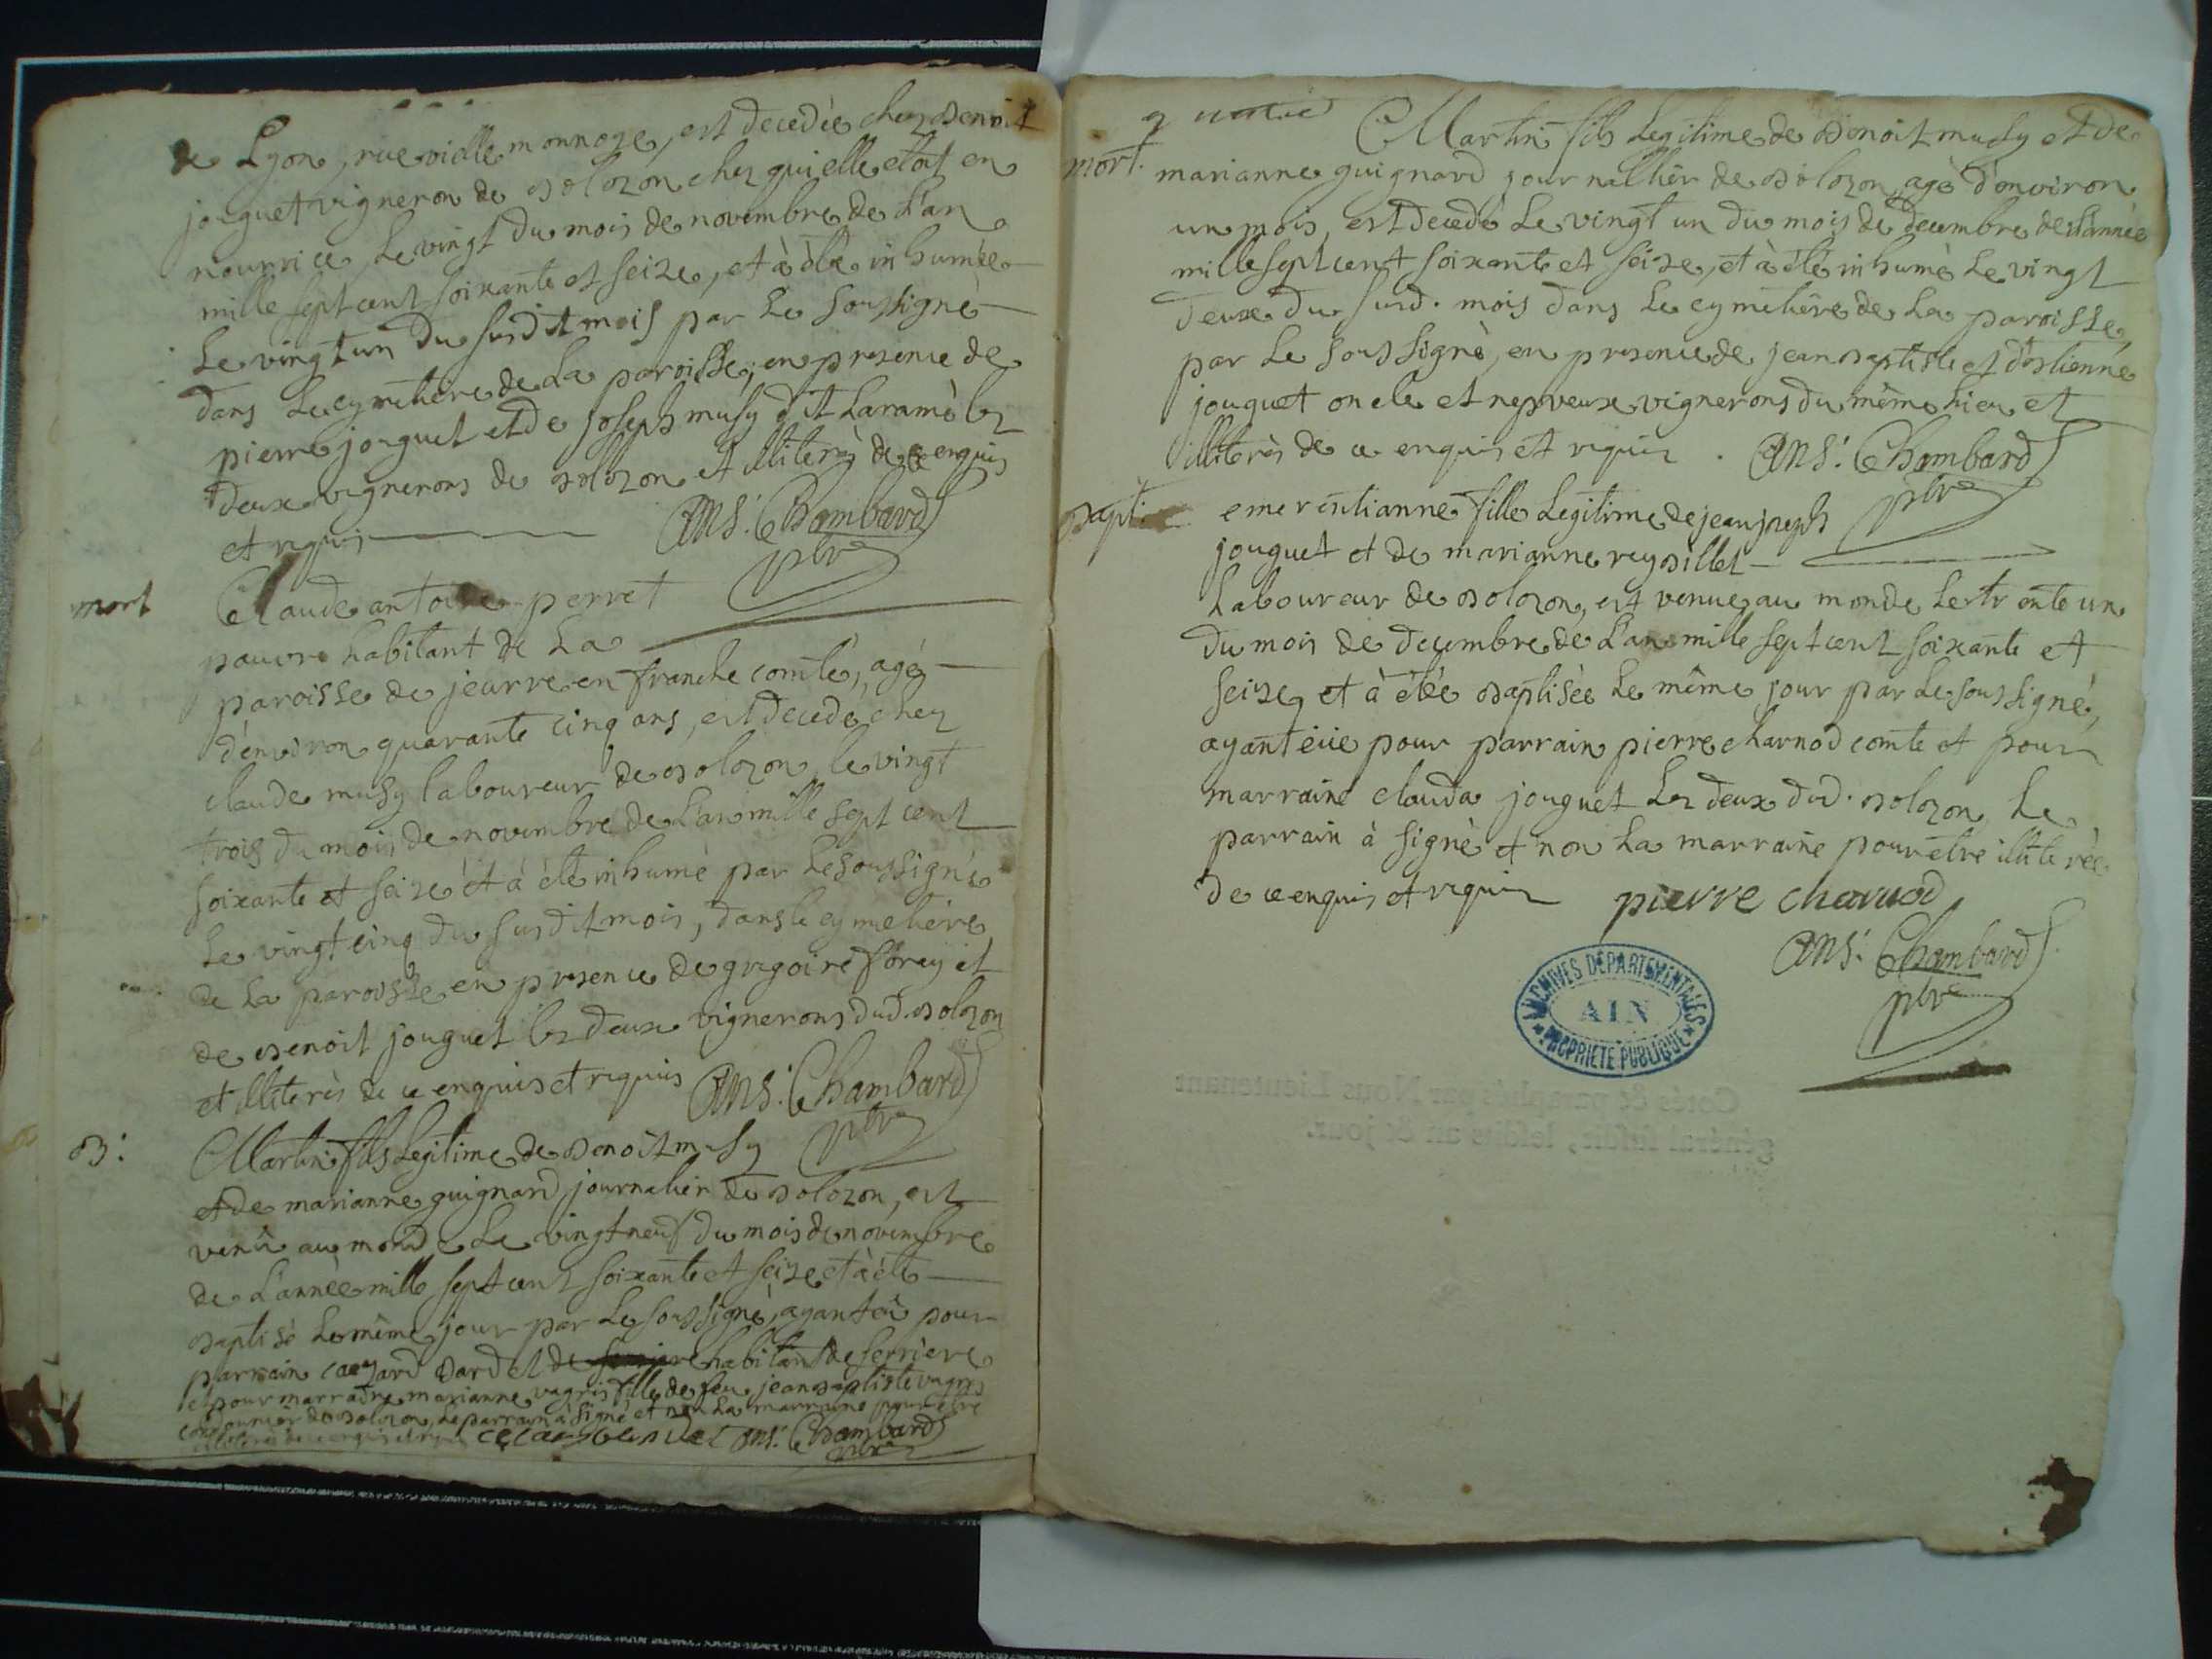 de Lyon, rue vielle monnoye, est decedée chez benoit
jouguet vigneron de bolozon chez qui elle etoit en
nourrice, Le vingt du mois de novembre de L'an
mille sept cent soixante et seize, et à été inhumée
Le vingt un du susdit mois par Le soussigné
dans Le cymetiere de La paroisse, en presence de
pierre jouguet et de joseph musy dit Laramé les
deux vignerons de bolozon et illiterès de ce enquis
et requis ans: Chambard
pbre
mort Claude antoine perret
pauvre habitant de La
paroisse de jeurre en franche comté, agé
d'environ quarante cinq ans, est decedé chez
claude musy laboureur de bolozon, le vingt
trois du mois de novembre de L'an mille sept cent
soixante et seize et à été inhumé par Le soussigné
Le vingt cinq du susdit mois, dans le cymetiére
de La paroisse en presence de gregoire forey et
de benoit jouguet les deux vignerons dud. bolozon
et illiterès de ce enquis et requis ans: Chambard
pbre
B: Martin fils Legitime de benoit musy
et de marianne guignard journalier de bolozon, est
venû au monde Le vingt neuf du mois de novembre
de L'année mille sept cent soixante et seize et à été
baptisé Le même jour par Le soussigné, ayant eû pour
parrain bardet de habitant de serriere
et pour marraine marianne vagris fille de feu jean baptiste vagris
cordonnier de bolozon, Le parrain à signé et non La marraine pour être
illiterée de ce enquis et requis ans: Chambard
pbre
quatre
mort. Martin fils Legitime de benoit musy et de
marianne guignard journallier de bolozon, agé d'environ
un mois, est decedé Le vingt un du mois de decembre de L'année
mille sept cent soixante et seize, et à été inhumé Le vingt
deux du susd. mois dans Le cymetière de La paroisse,
par Le soussigné, en presence de jean baptiste et d'estienne
jouguet oncle et nepveux vignerons du même lieu et
illiterès de ce enquis et requis. ans: Chambard
pbre
bapt: emerentianne fille Legitime de jean joseph
jouguet et de marianne reybillet
Laboureur de bolozon, est venue au monde Le trente un
du mois de decembre de L'an mille sept cent soixante et
seize, et à été baptisée Le même jour par Le soussigné,
ayant eüe pour parrain pierre charnod comte et pour
marraine clauda jouguet Les deux dud. bolozon, Le
parrain à signé et non La marraine pour être illiterée
de ce enquis et requis pierre charnod
ans: Chambard
pbre
ARCHIVES DÉPARTEMENTALES
AIN
PROPRIÉTÉ PUBLIQUE
Cotés & paraphés par Nous Lieutenant
général susdit, lesdits an & jour.